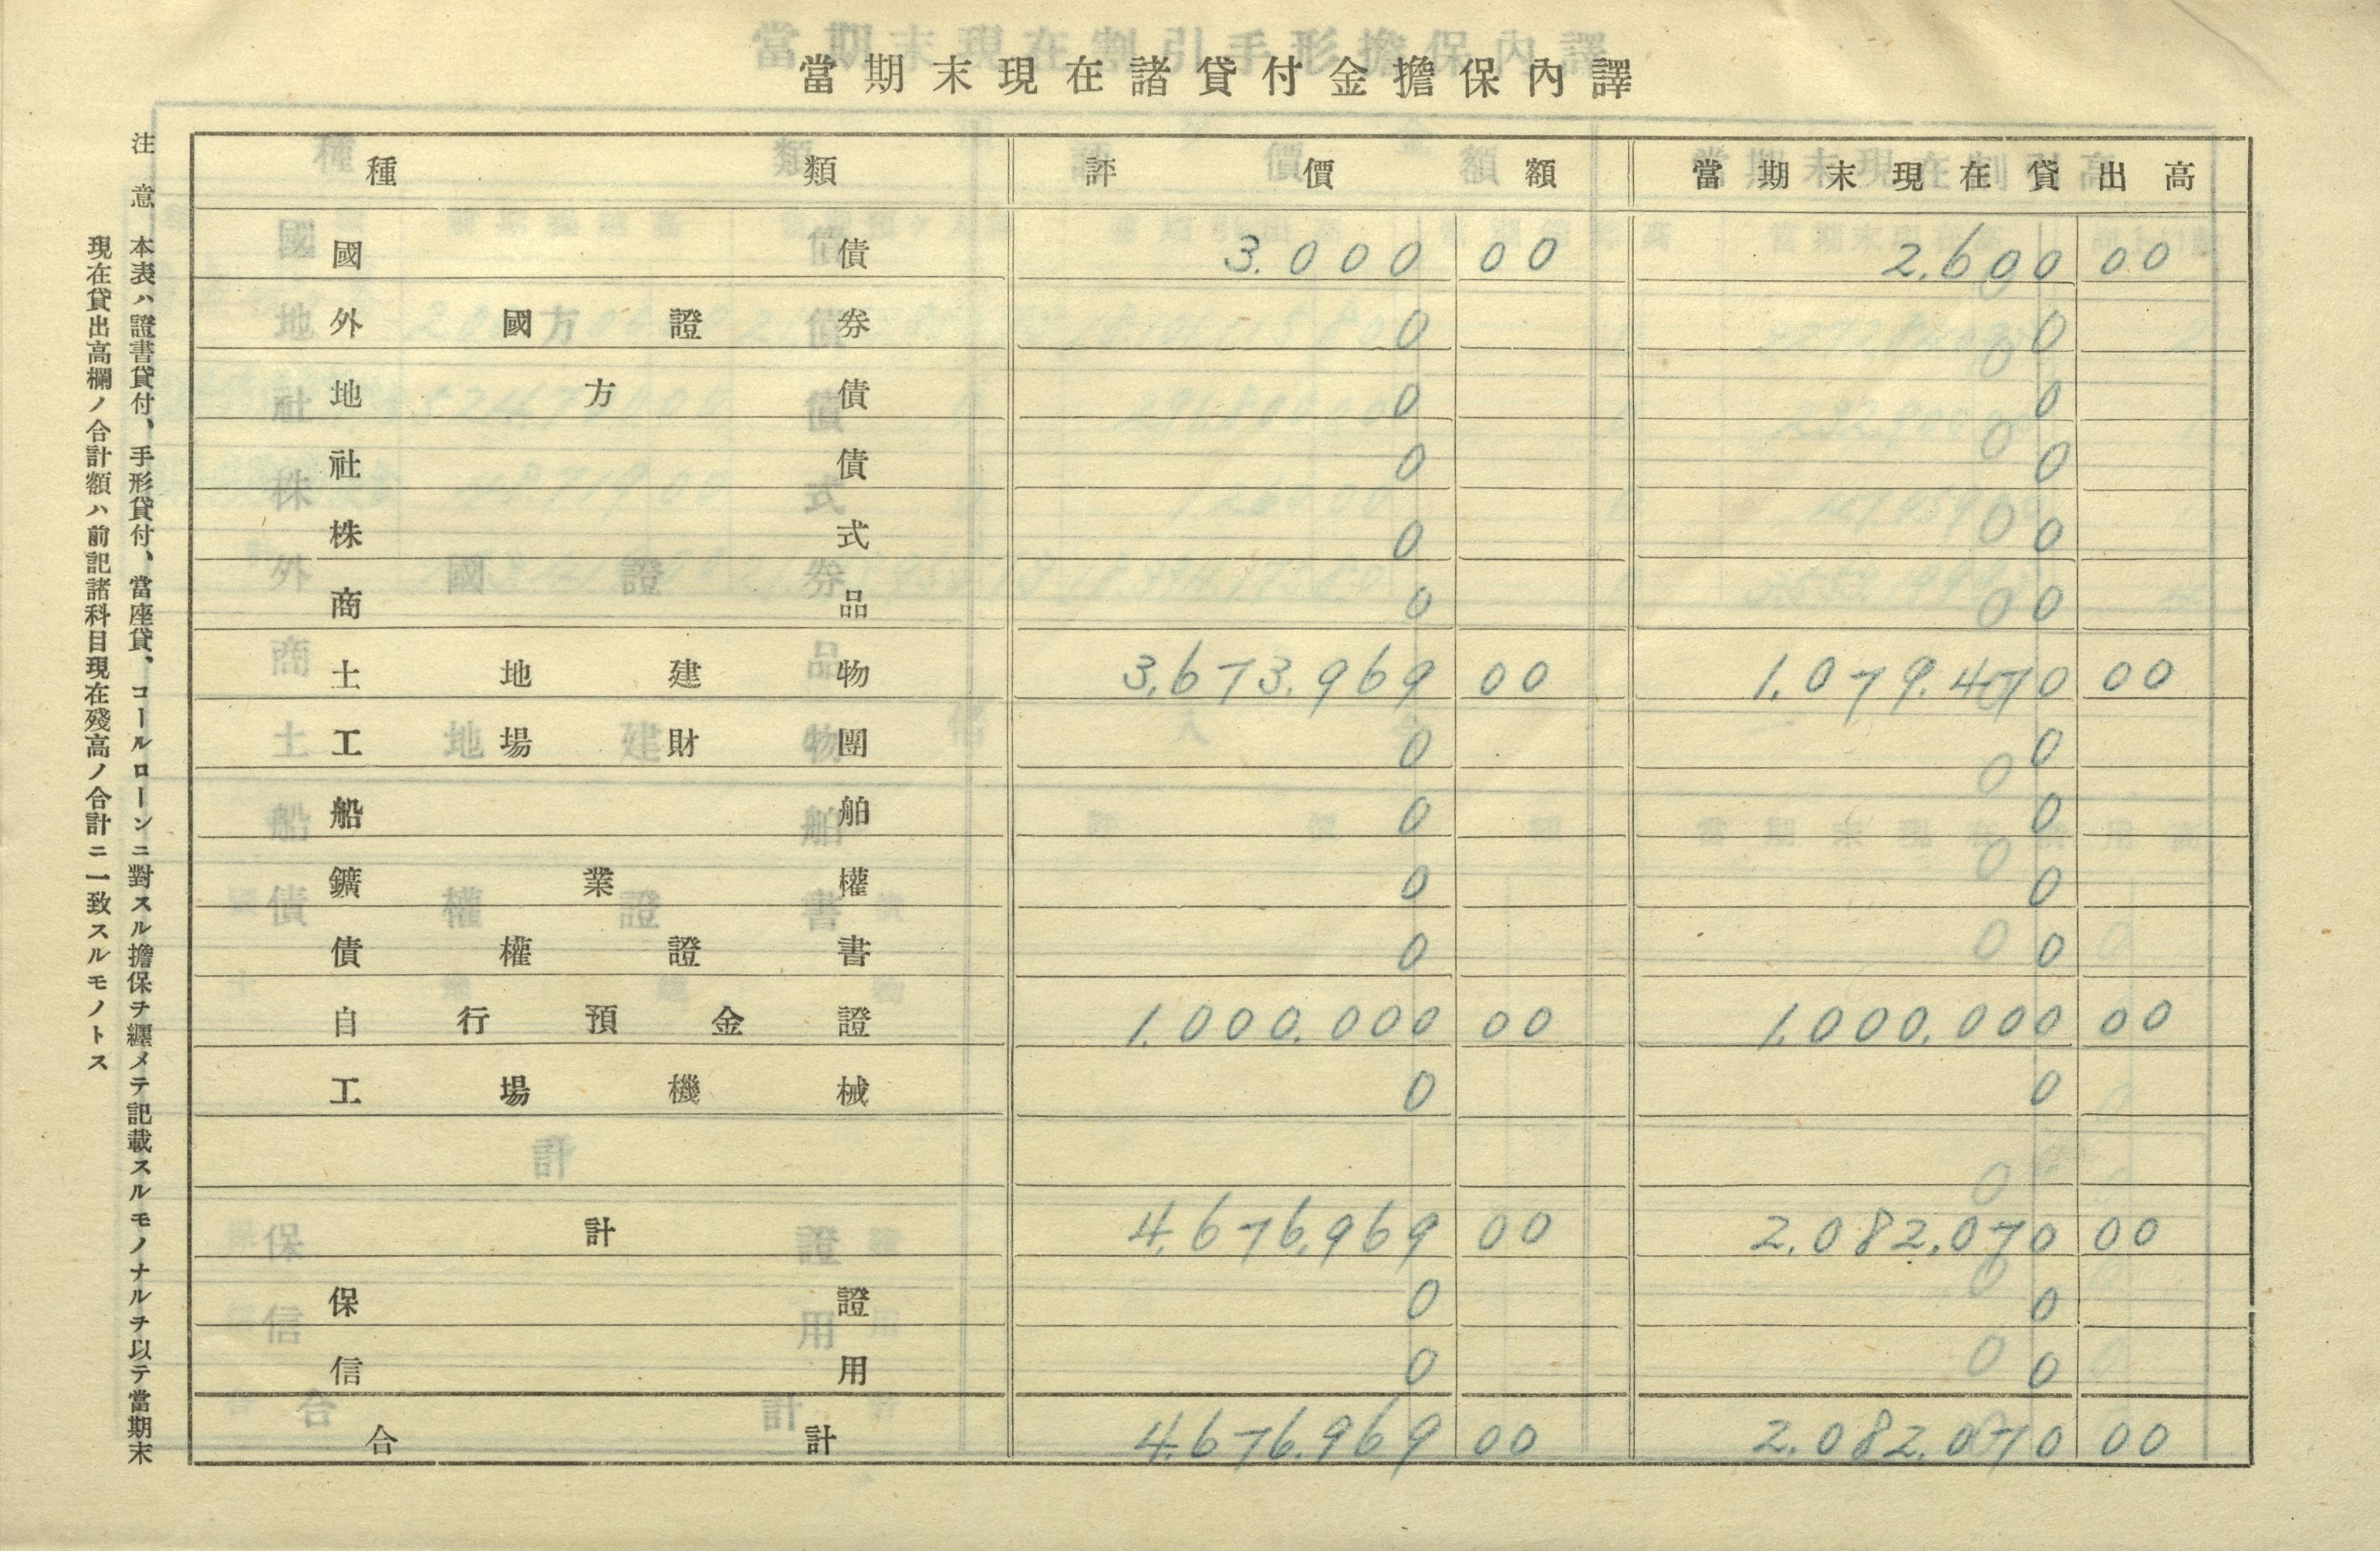 當期末現在諸貸付金擔保內譯
種類 評價額 當期末現在貸出高
國債 3.000 00 2.600 00
外國證券 0 0
地方債 0 0
社債 0 0
株式 0 0
商品 0 0
土地建物 3.673.969 00 1.079.470 00
工場財團 0 0
船舶 0 0
鑛業權 0 0
債權證書 0 0
自行預金證 1.000.000 00 1.000.000 00
工場機械 0 0
計 4.676.969 00 2.082.070 00
保證 0 0
信用 0 0
合計 4.676.969 00 2.082.070 00
注意 本表ハ證書貸付、手形貸付、當座貸、コールローンニ對スル擔保ヲ纒メテ記載スルモノナルヲ以テ當期末
現在貸出高欄ノ合計額ハ前記諸科目現在殘高ノ合計ニ一致スルモノトス